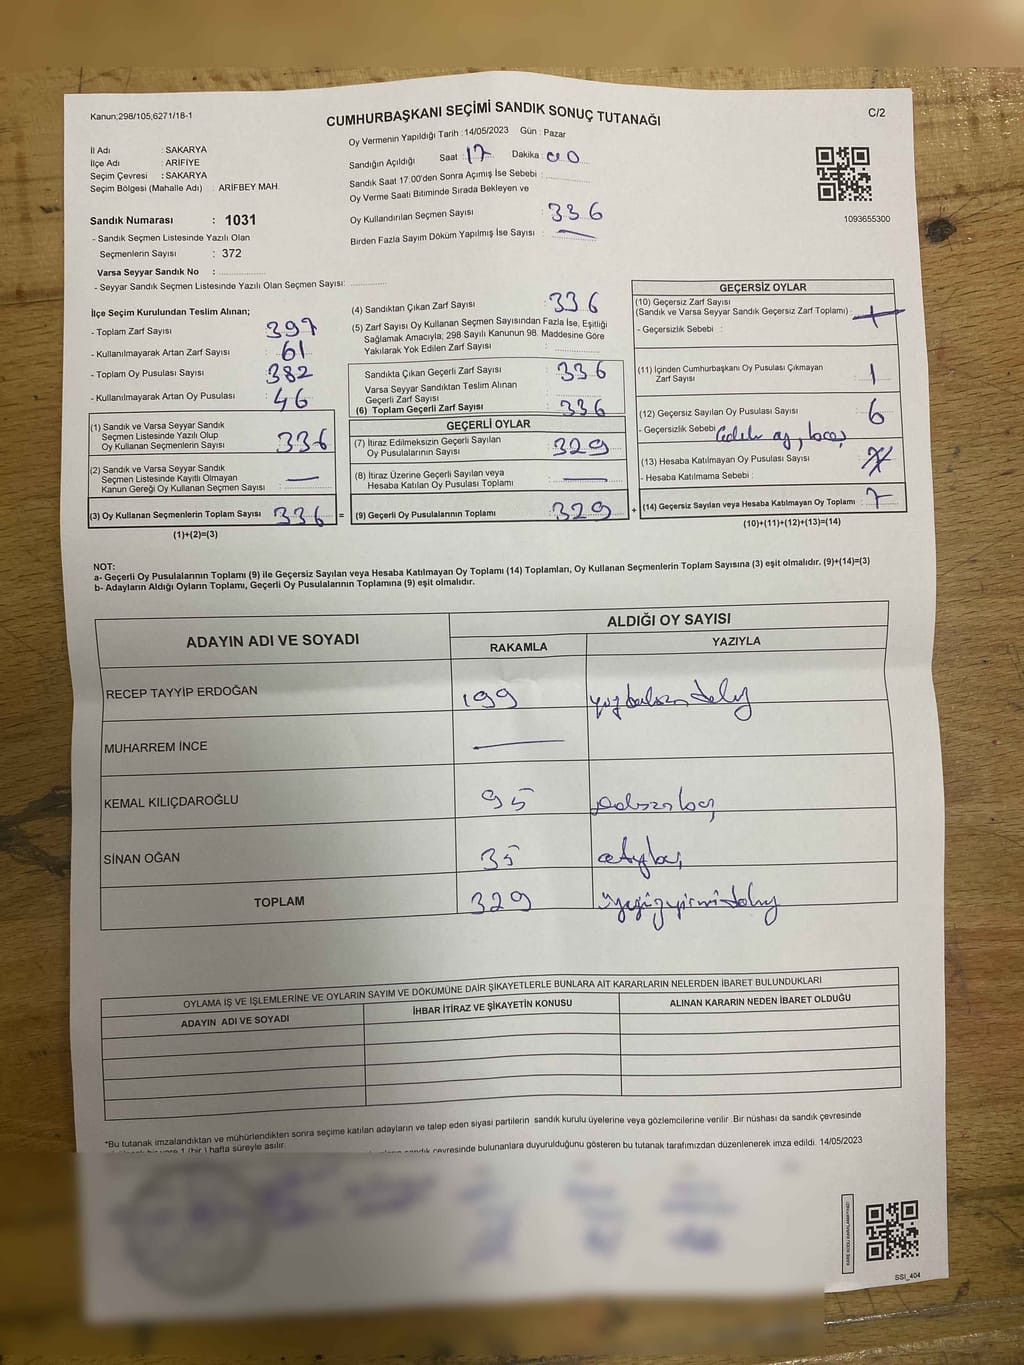 Kanun;298/105,6271/18-1
CUMHURBAŞKANI SEÇİMİ SANDIK SONUÇ TUTANAĞI
C/2
Oy Vermenin Yapıldığı Tarih : 14/05/2023 Gün : Pazar
Sandığın Açıldığı Saat : 17 Dakika : 00
Sandık Saat 17:00'den Sonra Açımış İse Sebebi :
Oy Verme Saati Bitiminde Sırada Bekleyen ve
Oy Kullandırılan Seçmen Sayısı : 336
Birden Fazla Sayım Döküm Yapılmış İse Sayısı : —
İl Adı : SAKARYA
İlçe Adı : ARİFİYE
Seçim Çevresi : SAKARYA
Seçim Bölgesi (Mahalle Adı) : ARİFBEY MAH.
Sandık Numarası : 1031
- Sandık Seçmen Listesinde Yazılı Olan
Seçmenlerin Sayısı : 372
Varsa Seyyar Sandık No :
- Seyyar Sandık Seçmen Listesinde Yazılı Olan Seçmen Sayısı:
1093655300
İlçe Seçim Kurulundan Teslim Alınan;
- Toplam Zarf Sayısı : 397
- Kullanılmayarak Artan Zarf Sayısı : 61
- Toplam Oy Pusulası Sayısı : 382
- Kullanılmayarak Artan Oy Pusulası : 46
(1) Sandık ve Varsa Seyyar Sandık
Seçmen Listesinde Yazılı Olup
Oy Kullanan Seçmenlerin Sayısı : 336
(2) Sandık ve Varsa Seyyar Sandık
Seçmen Listesinde Kayıtlı Olmayan
Kanun Gereği Oy Kullanan Seçmen Sayısı : —
(3) Oy Kullanan Seçmenlerin Toplam Sayısı : 336 =
(1)+(2)=(3)
(4) Sandıktan Çıkan Zarf Sayısı : 336
(5) Zarf Sayısı Oy Kullanan Seçmen Sayısından Fazla İse, Eşitliği
Sağlamak Amacıyla; 298 Sayılı Kanunun 98. Maddesine Göre
Yakılarak Yok Edilen Zarf Sayısı :
Sandıkta Çıkan Geçerli Zarf Sayısı : 336
Varsa Seyyar Sandıktan Teslim Alınan
Geçerli Zarf Sayısı :
(6) Toplam Geçerli Zarf Sayısı : 336
GEÇERLİ OYLAR
(7) İtiraz Edilmeksizin Geçerli Sayılan
Oy Pusulalarının Sayısı : 329
(8) İtiraz Üzerine Geçerli Sayılan veya
Hesaba Katılan Oy Pusulası Toplamı : —
(9) Geçerli Oy Pusulalarının Toplamı : 329 +
GEÇERSİZ OYLAR
(10) Geçersiz Zarf Sayısı
(Sandık ve Varsa Seyyar Sandık Geçersiz Zarf Toplamı) :
- Geçersizlik Sebebi :
(11) İçinden Cumhurbaşkanı Oy Pusulası Çıkmayan
Zarf Sayısı : 1
(12) Geçersiz Sayılan Oy Pusulası Sayısı : 6
- Geçersizlik Sebebi :
(13) Hesaba Katılmayan Oy Pusulası Sayısı :
- Hesaba Katılmama Sebebi :
(14) Geçersiz Sayılan veya Hesaba Katılmayan Oy Toplamı : 7
(10)+(11)+(12)+(13)=(14)
NOT:
a- Geçerli Oy Pusulalarının Toplamı (9) ile Geçersiz Sayılan veya Hesaba Katılmayan Oy Toplamı (14) Toplamları, Oy Kullanan Seçmenlerin Toplam Sayısına (3) eşit olmalıdır. (9)+(14)=(3)
b- Adayların Aldığı Oyların Toplamı, Geçerli Oy Pusulalarının Toplamına (9) eşit olmalıdır.
ADAYIN ADI VE SOYADI
ALDIĞI OY SAYISI
RAKAMLA YAZIYLA
RECEP TAYYİP ERDOĞAN 199 yüzdoksandokuz
MUHARREM İNCE —
KEMAL KILIÇDAROĞLU 95 doksanbeş
SİNAN OĞAN 35 otuzbeş
TOPLAM 329 üçyüzyirmidokuz
OYLAMA İŞ VE İŞLEMLERİNE VE OYLARIN SAYIM VE DÖKÜMÜNE DAİR ŞİKAYETLERLE BUNLARA AİT KARARLARIN NELERDEN İBARET BULUNDUKLARI
ADAYIN ADI VE SOYADI İHBAR İTİRAZ VE ŞİKAYETİN KONUSU ALINAN KARARIN NEDEN İBARET OLDUĞU
*Bu tutanak imzalandıktan ve mühürlendikten sonra seçime katılan adayların ve talep eden siyasi partilerin sandık kurulu üyelerine veya gözlemcilerine verilir. Bir nüshası da sandık çevresinde
1 (bir ) hafta süreyle asılır. sandık çevresinde bulunanlara duyurulduğunu gösteren bu tutanak tarafımızdan düzenlenerek imza edildi. 14/05/2023
KARE KODU KARALAMAYINIZ!
SSI_404